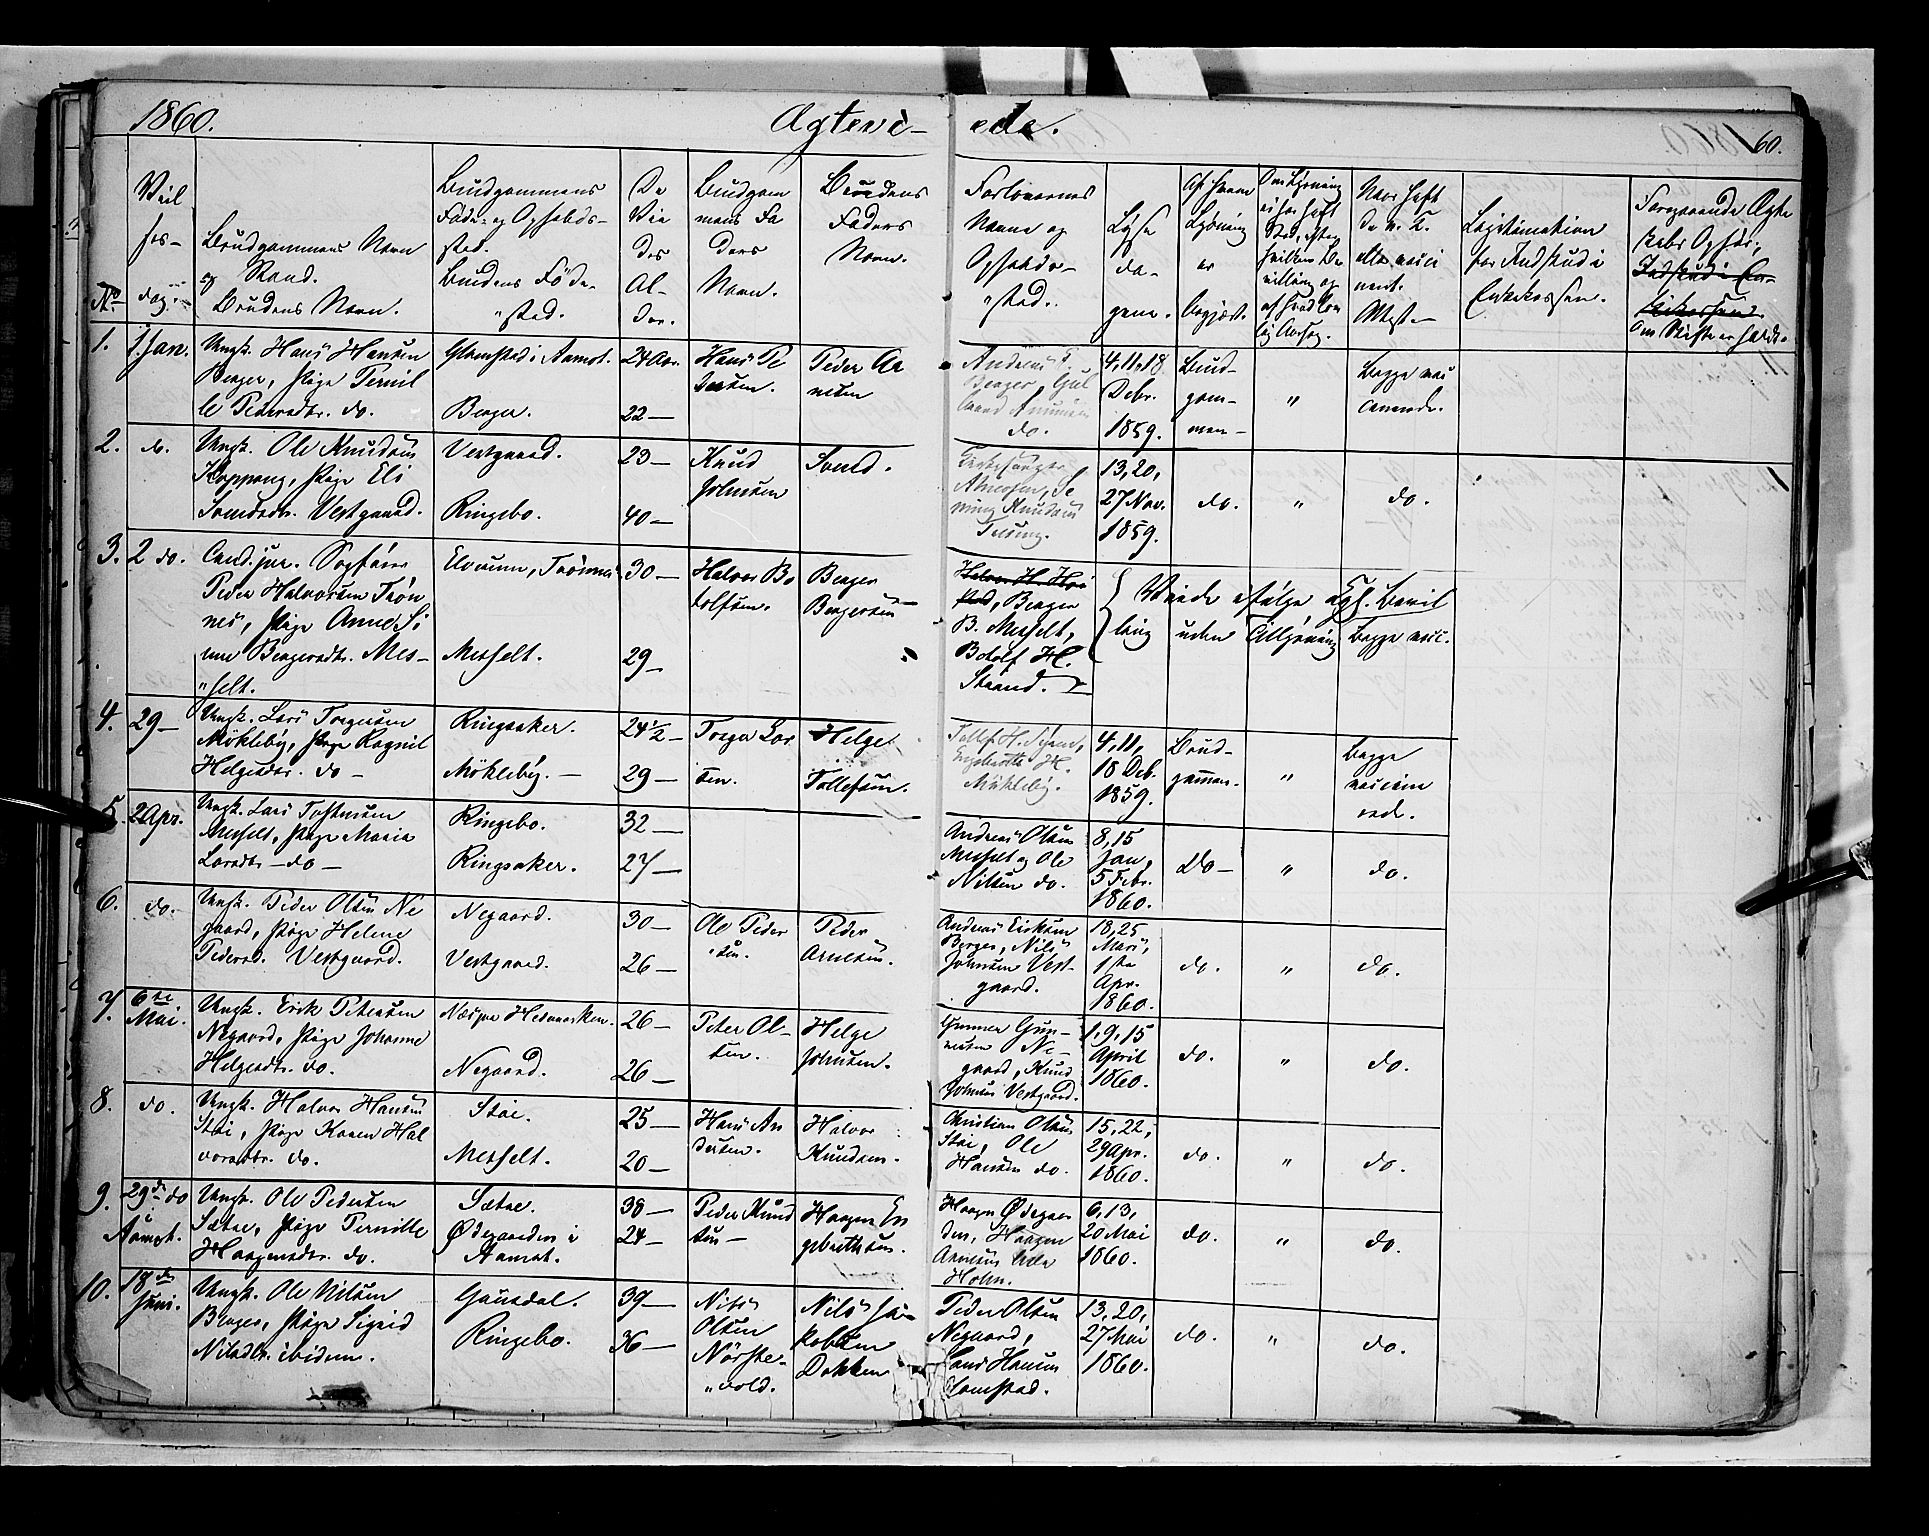 1860.
Ægtevi-
ede.
60.
No
Viel
ses-
dag.
Brudgommens Navn
og Stand.
Brudens Navn.
Brudgommens
Føde- og Opholds-
sted.
Brudens Føde-
"sted.
De
Vie
des
Al-
der.
Brudgom
mens Fa
ders
Navn.
Brudens
Faders
Navn.
Forlovernes
Navne og
Opholds-
"sted.
Lysn
da-
gene.
Af hvem
Lysning
er
begjært.
Legitimation
for Indskud i
Enkekassen.
Foregaaende Ægte
skabs Ophør,
Indskud i En-
kekassen.
Om Skifte er holdt.
1.
1 Jan.
Ungk. Hans Hansen
Berger, Pige Pernil
le Pedersdtr. do.
Glomstad i Aamot.
Berger.
24 Aar.
22 —
Hans Pe
dersen.
Peder Ar
nesen
Andreas E.
Berger, Gul
brand Amunsen
do.
4, 11, 18
Debr.
1859.
Brud-
gom-
men-
"
Begge vac
cinerede.
2.
do.
Ungk. Ole Knudsen
Koppang, Pige Eli
Svendsdtr. Vestgaard.
Vestgaard.
Ringebo.
23 —
40 —
Knud
Johnsen
Svend.
Kirkesanger
13, 20,
27 Nov.
1859.
do.
"
do.
3.
2 do.
Cand. jur. Sagfører
Peder Halvorsen Trøn
nes, Pige Anne Si
ne Bergersdtr. Mes-
"selt.
Elverum, Trønnes
Messelt.
30 —
29 —
Halvor Bo
tolfsen.
Berger
Bergersen
Halvor H. Hov
stad, Berger
B. Messelt,
Botolf H.
Strand.
Viede ifølge Kgl. Bevil
ling uden Tillysning Begge vacc.
4.
29 —
Ungk. Lars Torgersen
Møkleby, Pige Ragnil
Helgesdtr. do —
Ringsaker.
Møkleby. —
24 1/2 —
29 —
Torger Lar
sen.
Helge
Tollefsen.
Engebreth H.
Møkleby.
4, 11,
18 Deb.
1859.
Brud-
gommen.
"
Begge
vaccine
rede.
5.
2 Apr.
Ungk. Lars Torstensen
Messelt, Pige Maria
Larsdtr — do —
Ringebo.
Ringsaker.
32 —
27 —
Andreas Olsen
Messelt og Ole
Nilsen do.
8, 15
Jan,
5 Febr.
1860.
do —
"
do.
6.
do.
Ungk. Peder Olsen Ne
gaard, Pige Helene
Pedersd. Vestgaard.
Negaard.
Vestgaard.
30 —
26 —
Ole Peder
"sen.
Peder
Arnesen.
Andreas Eriksen
Berger, Nils
Johnsen Vest-
gaard.
18, 25
Mars,
1ste
Apr.
1860.
do.
"
do.
7.
6te
Mai.
Ungk. Erik Petersen
Negaard, Pige Johanne
Helgesdtr. do.
Næs paa Hedemarken.
Negaard.
26 —
26 —
Peter Ol-
sen.
Helge
Johnsen.
Gunner Gun-
nersen Ne-
gaard, Knud
Johnsen Vestgaard.
1, 9, 15
April
1860.
do.
"
do.
8.
do.
Ungk. Halvor Hansen
Stai, Pige Karen Hal
vorsdtr. do.
Stai.
Messelt.
25 —
20 —
Hans An
dersen.
Halvor
Knudsen.
Christian Olsen
Stai, Ole
Hansen do.
15, 22,
29 Apr.
1860.
do.
"
do.
9.
29de do
Aamot.
Ungk. Ole Pedersen
Sætre, Pige Pernille
Haagensdtr. do.
Sætre.
Ødegaarden i
Aamot.
38 —
24 —
Peder Knud
sen —
Haagen En
gebrethsen.
Haagen Ødegaar
den, Haagen
Arnesen
Holm.
6, 13,
20 Mai
1860.
do.
"
do.
10.
18de
Juni.
Ungk. Ole Nilsen
Berger, Pige Sigrid
Nilsdtr. ibidem.
Gausdal.
Ringebo.
39 —
36 —
Nils
Olsen
Nørste-
"vold.
Nils Ja-
kobsen
Dokken
Peder Olsen
Negaard,
Hans Hansen
Glomstad.
13, 20,
27 Mai
1860.
do.
"
do.